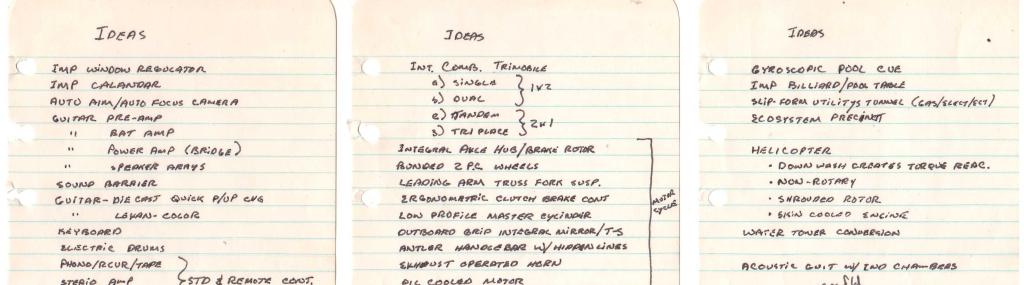 IDEAS
IMP WINDOW REGULATOR
IMP CALANDAR
AUTO AIM/AUTO FOCUS CAMERA
GUITAR PRE-AMP
" BAT AMP
" POWER AMP (BRIDGE)
" SPEAKER ARRAYS
SOUND BARRIER
GUITAR-DIE CAST QUICK P/UP CHG
" LEXAN-COLOR
KEYBOARD
ELECTRIC DRUMS
PHONO/RCUR/TAPE
STERIO AMP } STD & REMOTE CONT.
IDEAS
INT. COMB. TRIMOBILE
a) SINGLE
b) DUAL } 1X2
a) TANDEM
b) TRIPLACE } 2X1
INTEGRAL AXLE HUB/BRAKE ROTOR
BONDED 2 PC. WHEELS
LEADING ARM TRUSS FORK SUSP.
ERGONOMETRIC CLUTCH BRAKE CONT
LOW PROFILE MASTER CYLINDER
OUTBOARD GRIP INTEGRAL MIRROR/T-S
ANTLER HANDLEBAR W/ HIDDEN LINES
EXHAUST OPERATED HORN
OIL COOLED MOTOR
MOTOR CYCLE
IDEAS
GYROSCOPIC POOL CUE
IMP BILLIARD/POOL TABLE
SLIP-FORM UTILITYS TUNNEL (GAS/ELECT/ECT)
ECOSYSTEM PRECINT
HELICOPTER
• DOWN WASH CREATES TORQUE REAC.
• NON-ROTARY
• SHROUDED ROTOR
• SKIN COOLED ENGINE
WATER TOWER CONVERSION
ACOUSTIC GUIT W/ 2ND CHAMBERS